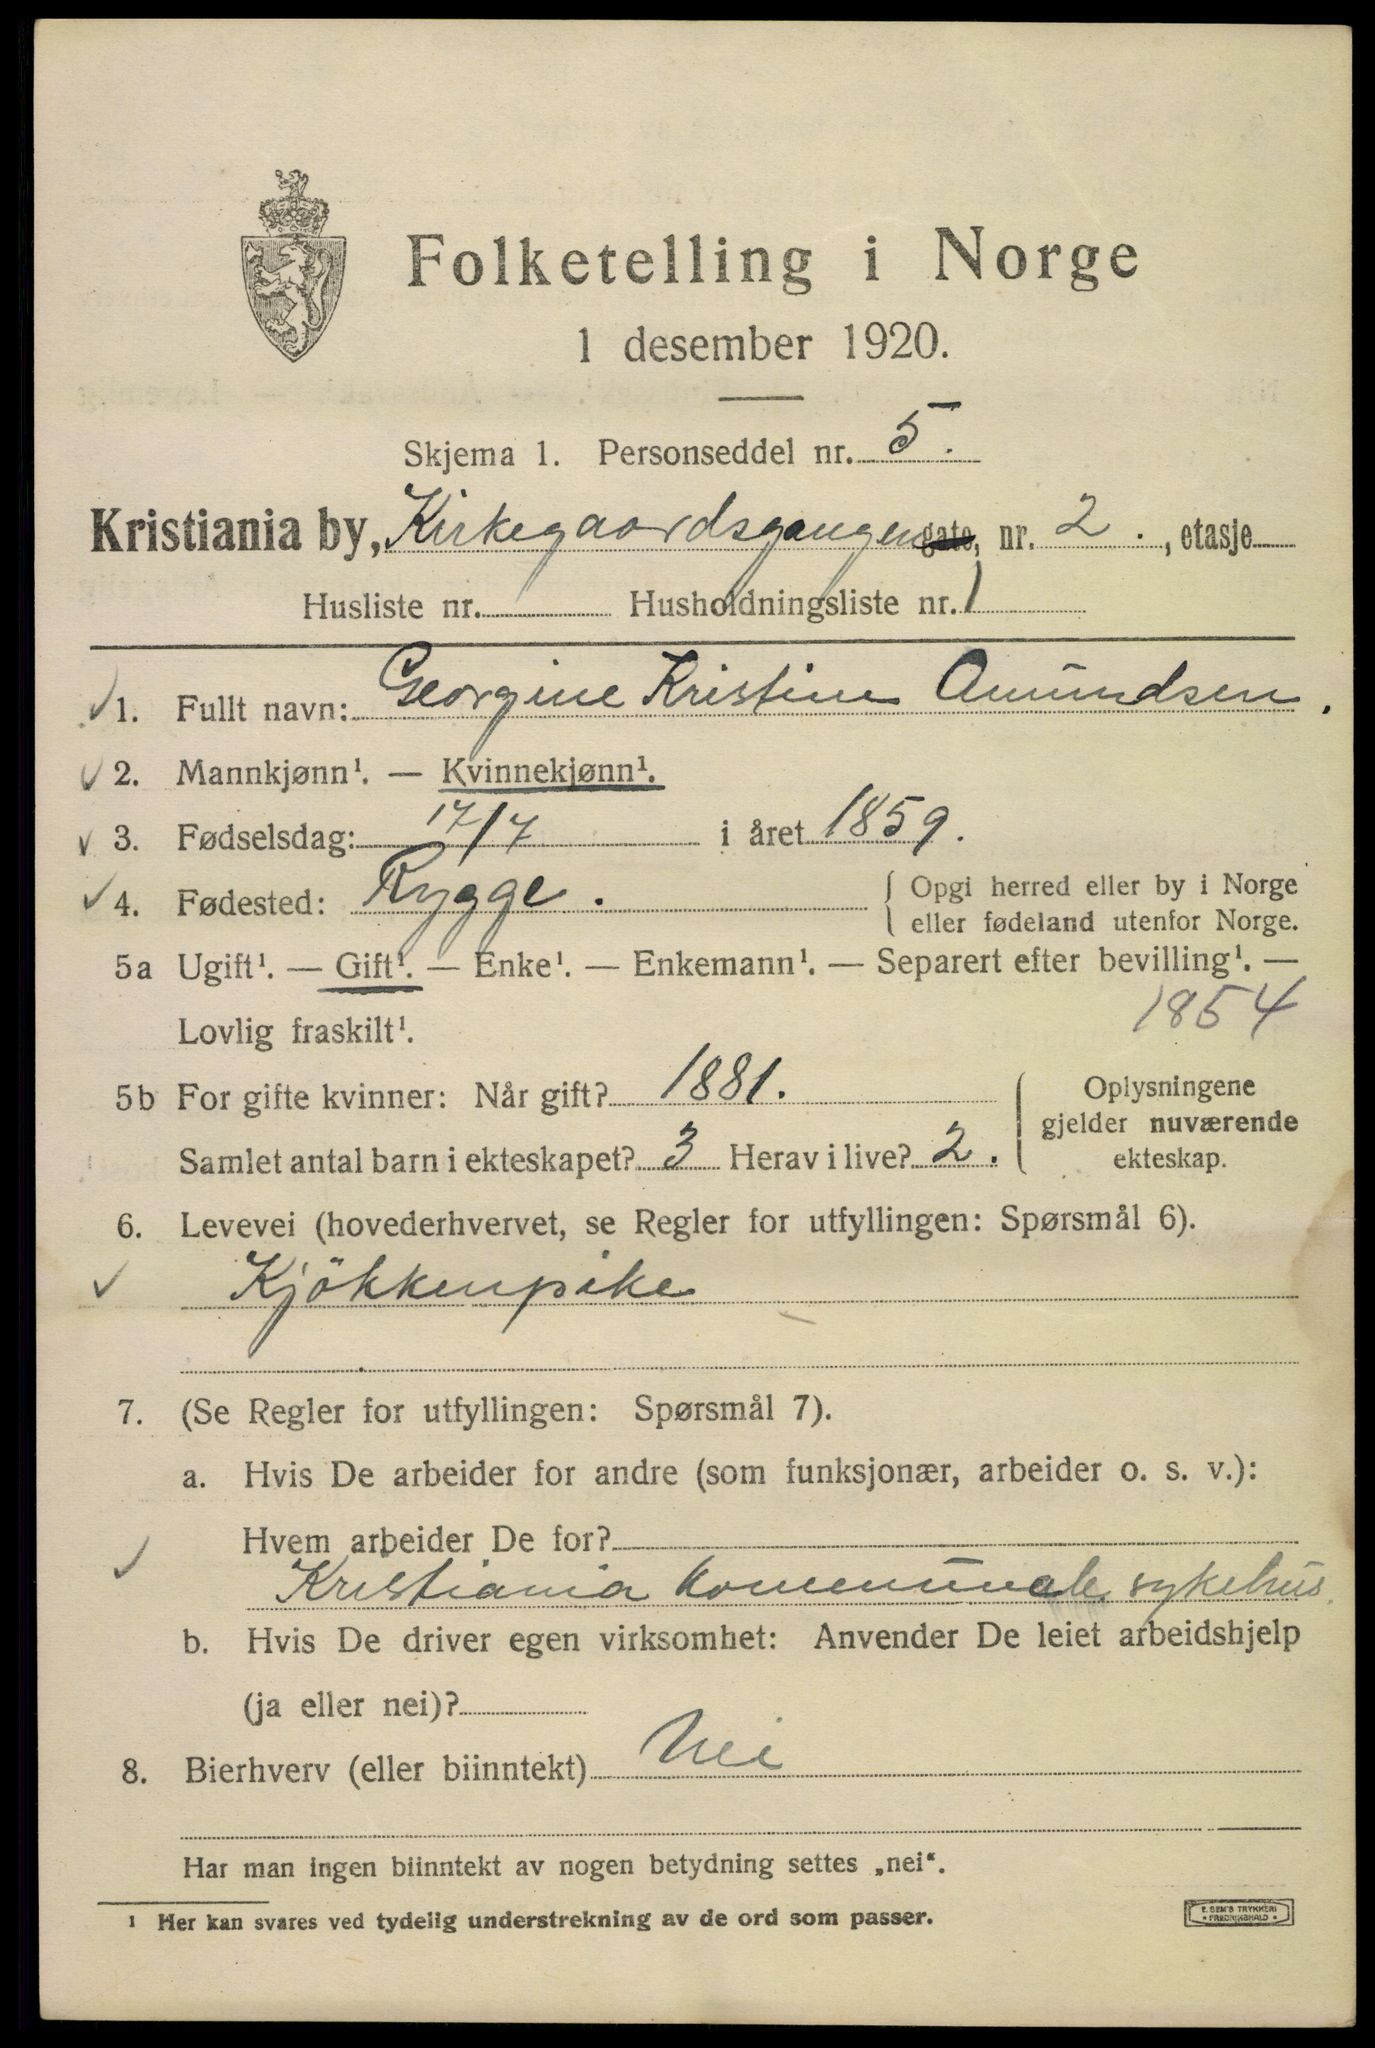 Folketelling i Norge
1 desember 1920.
Skjema 1. Personseddel nr. 5.
Kristiania by, Kirkegaardsgangen gate, nr. 2., etasje
Husliste nr. Husholdningsliste nr. 1
1. Fullt navn: Georgine Kristine Amundsen.
2. Mannkjønn¹. — Kvinnekjønn¹.
3. Fødselsdag: 17/7 i året 1859.
4. Fødested: Rygge. { Opgi herred eller by i Norge
eller fødeland utenfor Norge.
5a Ugift¹. — Gift¹. — Enke¹. — Enkemann¹. — Separert efter bevilling¹. —
Lovlig fraskilt¹. 1854
5b For gifte kvinner: Når gift? 1881.
Samlet antal barn i ekteskapet? 3 Herav i live? 2.
Oplysningene
gjelder nuværende
ekteskap.
6. Levevei (hovederhvervet, se Regler for utfyllingen: Spørsmål 6).
Kjökkenpike
7. (Se Regler for utfyllingen: Spørsmål 7).
a. Hvis De arbeider for andre (som funksjonær, arbeider o. s. v.):
Hvem arbeider De for?
Kristiania kommunale sykehus.
b. Hvis De driver egen virksomhet: Anvender De leiet arbeidshjelp
(ja eller nei)?
8. Bierhverv (eller biinntekt) Nei
Har man ingen biinntekt av nogen betydning settes „nei“.
¹ Her kan svares ved tydelig understrekning av de ord som passer.
E. SEM'S TRYKKERI
FREDRIKSHALD